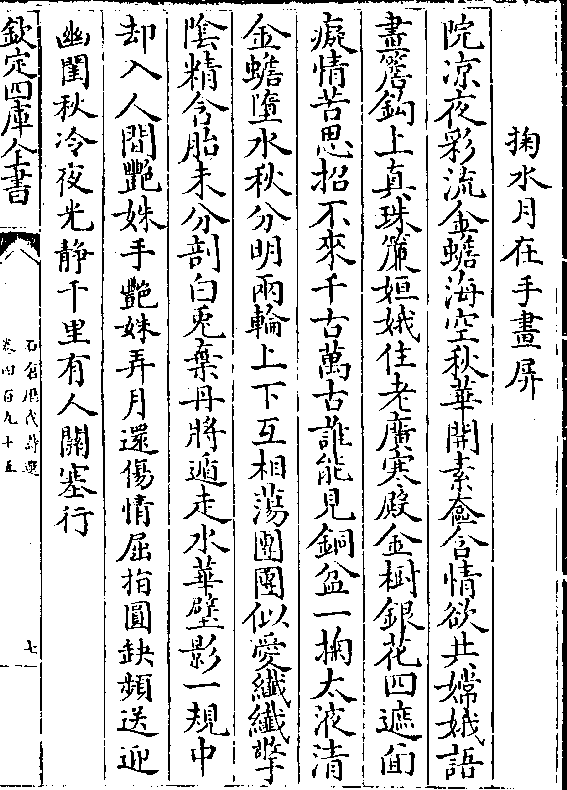 掬水月在手畫屏
院凉夜彩流金蟾海空秋華開素奩含情欲共嫦娥語
畫簷鈎上真珠簾姮娥住老廣寒殿金樹銀花四遮面
癡情苦思招不來千古萬古誰能見銅盆一掬太液清
金蟾墮水秋分明兩輪上下互相蕩團團似愛纖纖擎
陰精含胎未分剖白兎棄丹將遁走水華壁影一規中
却入人間艷姝手艷姝弄月還傷情屈指圓缺頻送迎
幽閨秋冷夜光靜千里有人關塞行
欽定四庫全書
石倉歴代詩選
卷四百九十五
七